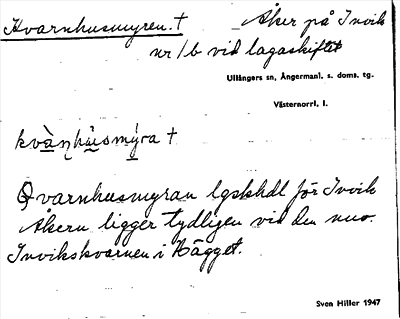 Kvarnhusmyren. † Åker på Invik
nr 1b vid lagaskiftet
Ullångers sn, Ångermanl. s. doms. tg.
Västernorrl. l.
kvànhùsmýra †
Qvarnhusmyran lgskhdl för Invik
Åkern ligger tydligen vid den nuv.
Invikskvarnen i Hägget.
Sven Hiller 1947